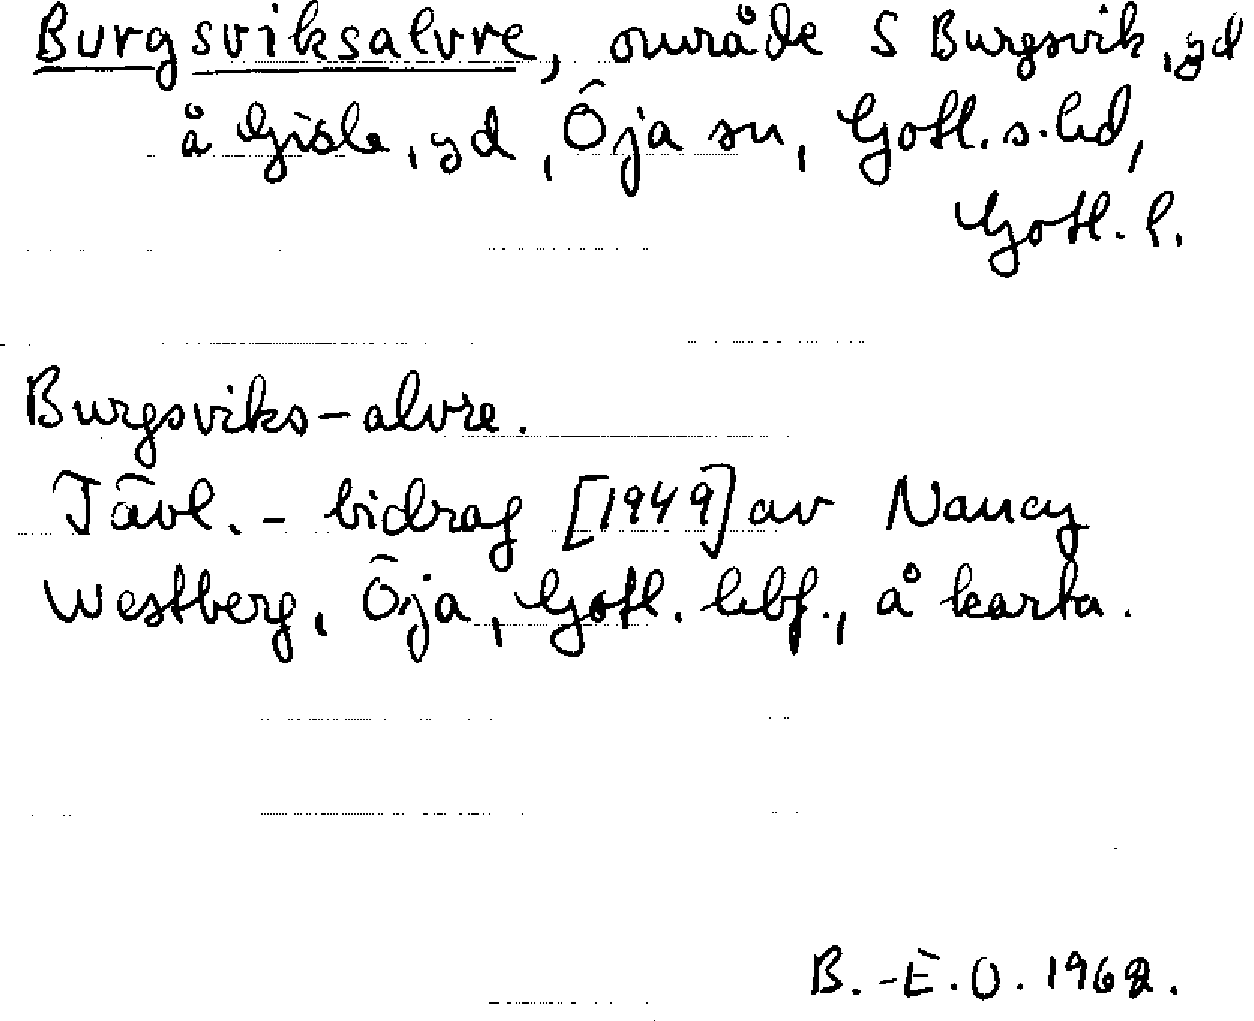 Burgsviksalvre, område S Burgsvik, gd
å Gisle, gd, Öja sn, Gotl. s. hd,
Gotl. l.
Burgsviks-alvre.
Tävl.- bidrag [1949] av Nancy
Westberg, Öja, Gotl. hbf., å karta.
B.-E.O. 1962.